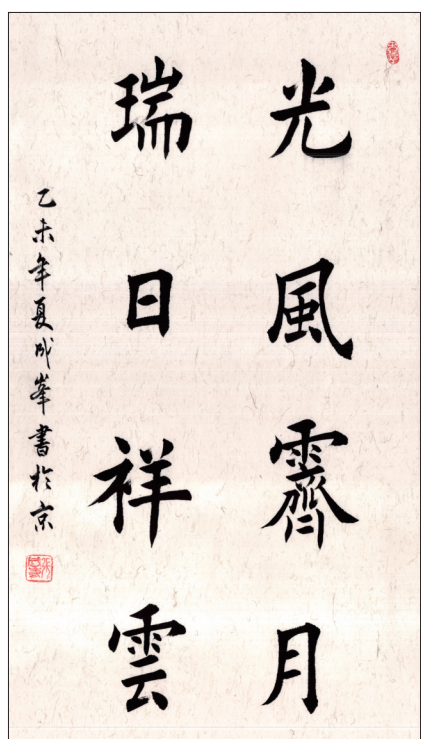 光風霽月
瑞日祥雲
乙未年夏成峯書於京